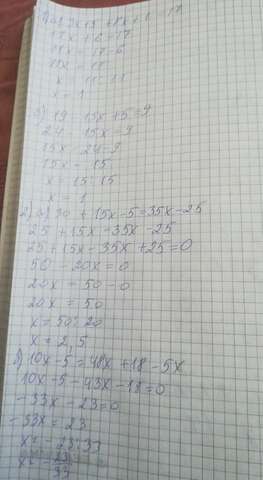 11x + 6 = 17
11x = 17-6
11x = 11
x = 11:11
x = 1
б) 19 - 15x + 5 = 9
24 - 15x = 9
15x = 24-9
15x = 15
x = 15:15
x = 1
2) а) 30 + 15x - 5 = 35x - 25
25 + 15x = 35x - 25
25 + 15x - 35x + 25 = 0
50 - 20x = 0
20x = 50 - 0
20x = 50
x = 50:20
x = 2,5
б) 10x - 5 = 48x + 18 - 5x
10x - 5 - 43x - 18 = 0
-33x - 23 = 0
-33x = 23
x = -23:33
x = -23/33